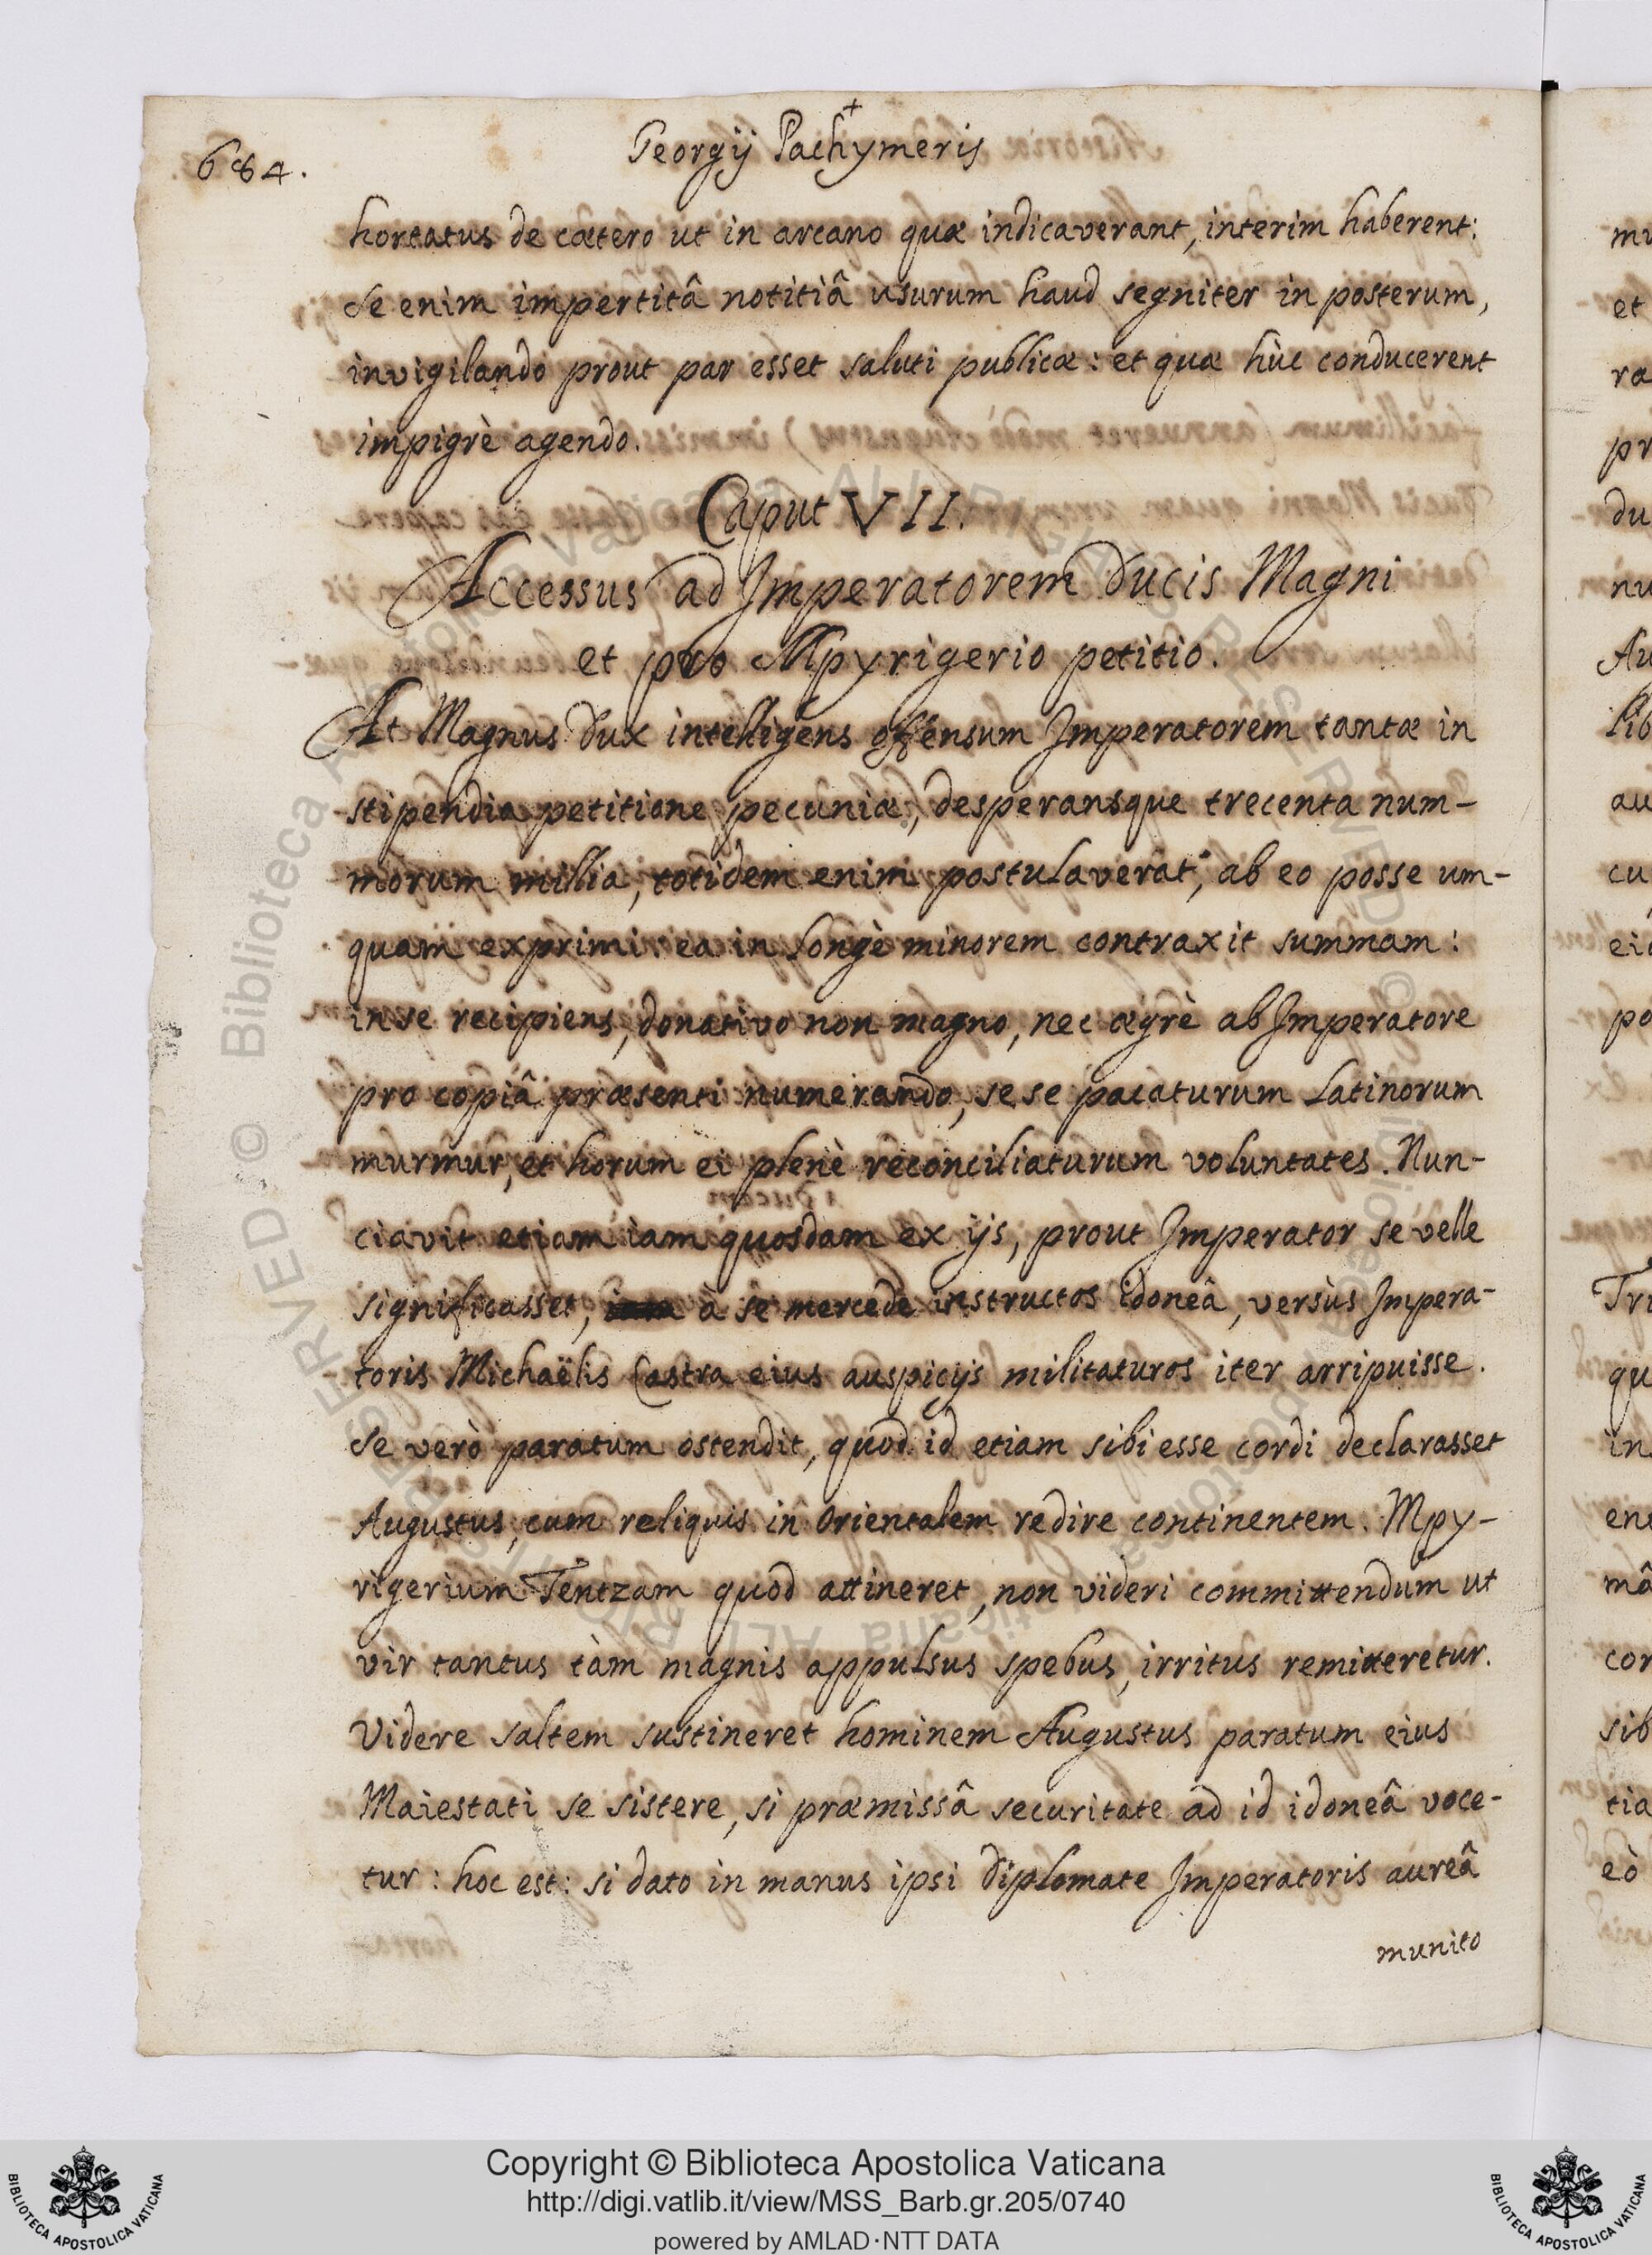 684.
Georgij Pachymeris
hortatus de cætero ut in arcano quæ indicaverant, interim haberent:
se enim impertitâ notitiâ usurum haud segniter in posterum,
invigilando prout par esset saluti publicæ: et quæ hùc conducerent
impigrè agendo.
Caput VII.
Accessus ad Imperatorem Ducis Magni
et pro Mpyrigerio petitio.
At Magnus Dux intelligens offensum Imperatorem tantæ in
stipendia petitione pecuniæ, desperansque trecenta num-
morum millia, totidem enim postulaverat, ab eo posse um-
quam exprimi: ea in longè minorem contraxit summam:
in se recipiens, donativo non magno, nec ægrè ab Imperatore
pro copiâ præsenti numerando, se se pacaturum Latinorum
murmur, et horum ei plenè reconciliaturum voluntates. Nun-
ciavit etiam iam quosdam ex ijs, prout Imperator se velle
significasset, à se mercede instructos idoneâ, versùs Impera-
toris Michaëlis Castra eius auspicijs militaturos iter arripuisse.
Se verò paratum ostendit, quod id etiam sibi esse cordi declarasset
Augustus, cum reliquis in Orientalem redire continentem. Mpy-
rigerium Tentzam quod attineret, non videri committendum ut
vir tantus tàm magnis appulsus spebus, irritus remitteretur.
Videre saltem sustineret hominem Augustus paratum eius
Maiestati se sistere, si præmissâ securitate ad id idoneâ voce-
tur: hoc est: si dato in manus ipsi diplomate Imperatoris aureâ
munito
Copyright © Biblioteca Apostolica Vaticana
http://digi.vatlib.it/view/MSS_Barb.gr.205/0740
powered by AMLAD·NTT DATA